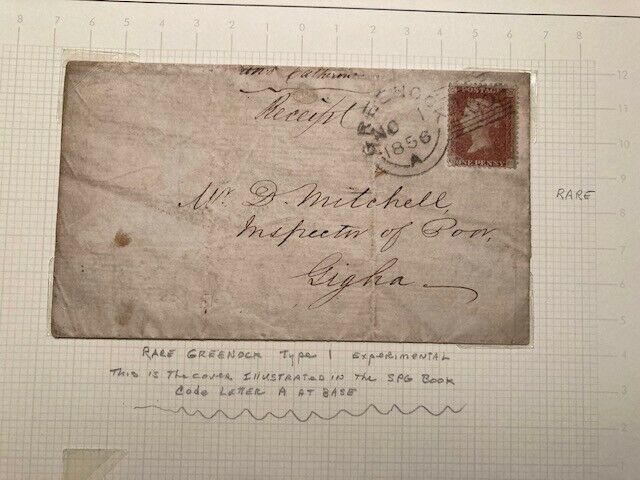 8 7 6 5 7 8
Receipt
GREENOCK
NO 1
1856
A
POSTAGE
ONE PENNY
Mr. D. Mitchell,
Inspector of Poor,
Gigha
RARE
RARE GREENOCK Type 1 EXPERIMENTAL
This is The COVER ILLUSTRATED IN The SPG BOOK
Code Letter A AT BASE